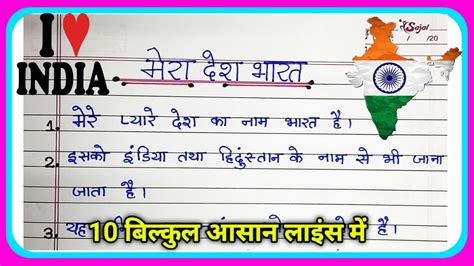 I ❤ INDIA
Sajal
/ /20
मेरा देश भारत
1. मेरे प्यारे देश का नाम भारत है।
2. इसको इंडिया तथा हिंदुस्तान के नाम से भी जाना
जाता है।
3. यह
है।
10 बिल्कुल आसान लाइंस में